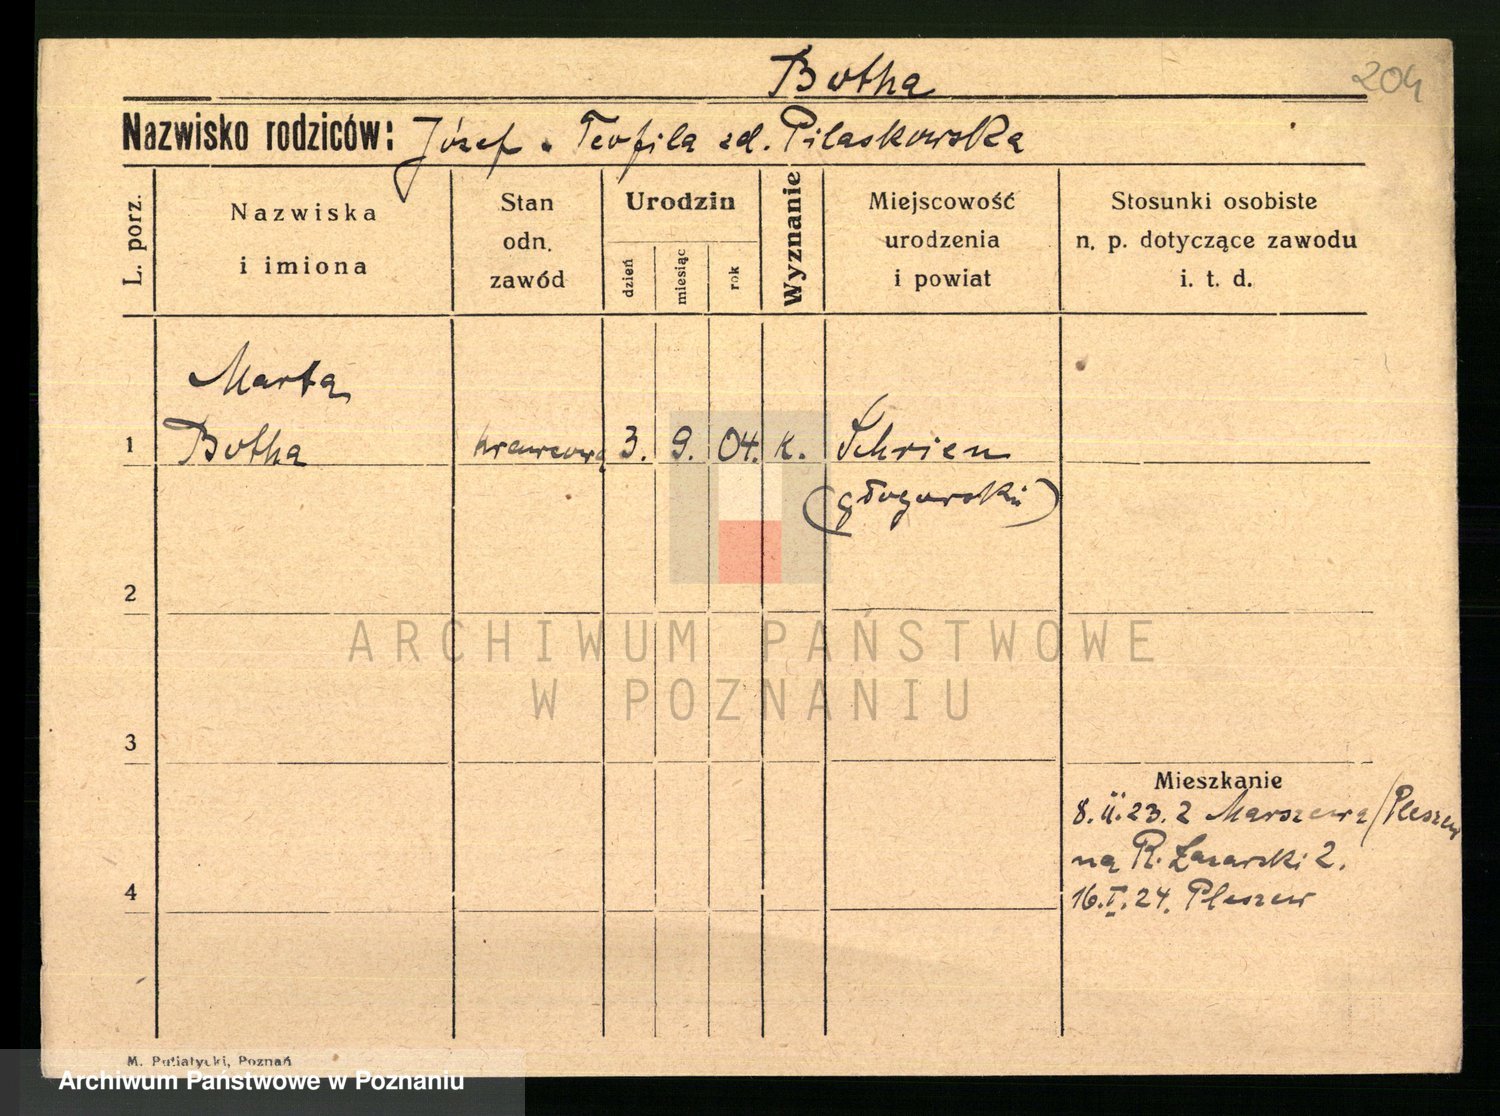 Botha
204
Nazwisko rodziców: Józef . Teofila zd. Pilaskowska
L. porz.
Nazwiska
i imiona
Stan
odn.
zawód
Urodzin
dzień
miesiąc
rok
Wyznanie
Miejscowość
urodzenia
i powiat
Stosunki osobiste
n. p. dotyczące zawodu
i. t. d.
Marta
1 Botha krawcowa 3. 9. 04. k. Schrien
(głogowski)
2
ARCHIWUM PAŃSTWOWE
W POZNANIU
3
Mieszkanie
8.II.23. z Marszewa/Pleszew
na R. Łazarski 2.
4
16.I.24. Pleszew
M. Putiatycki, Poznań
Archiwum Państwowe w Poznaniu